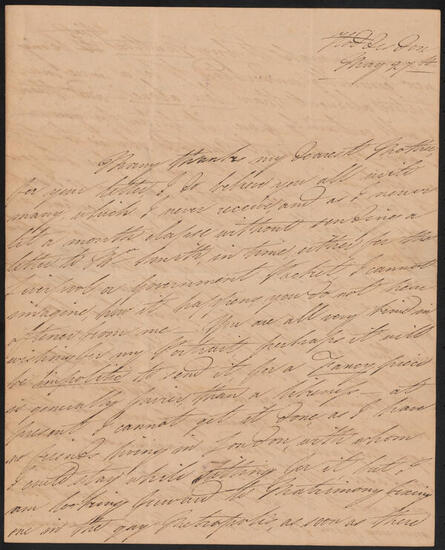 Hoddesdon
May 27th
Many thanks my dearest Mother
for your letter, I do believe you all write
many which I never receive, and as I never
let a months elapse without sending a
letter to Mr in time, either for the
Liverpool or Government Packet I cannot
imagine how it happens you do not hear
oftener from me – You are all very kind in
wishing for my Portrait perhaps it will
be impolitic to send it, for a Fancy piece
is generally fairer than a likeness – at
present I cannot get it done as I have
no friends living in London, with whom
I could stay while sitting for it but, I
am looking forward to Matrimony fixing
me in the gay Metropolis, as soon as there